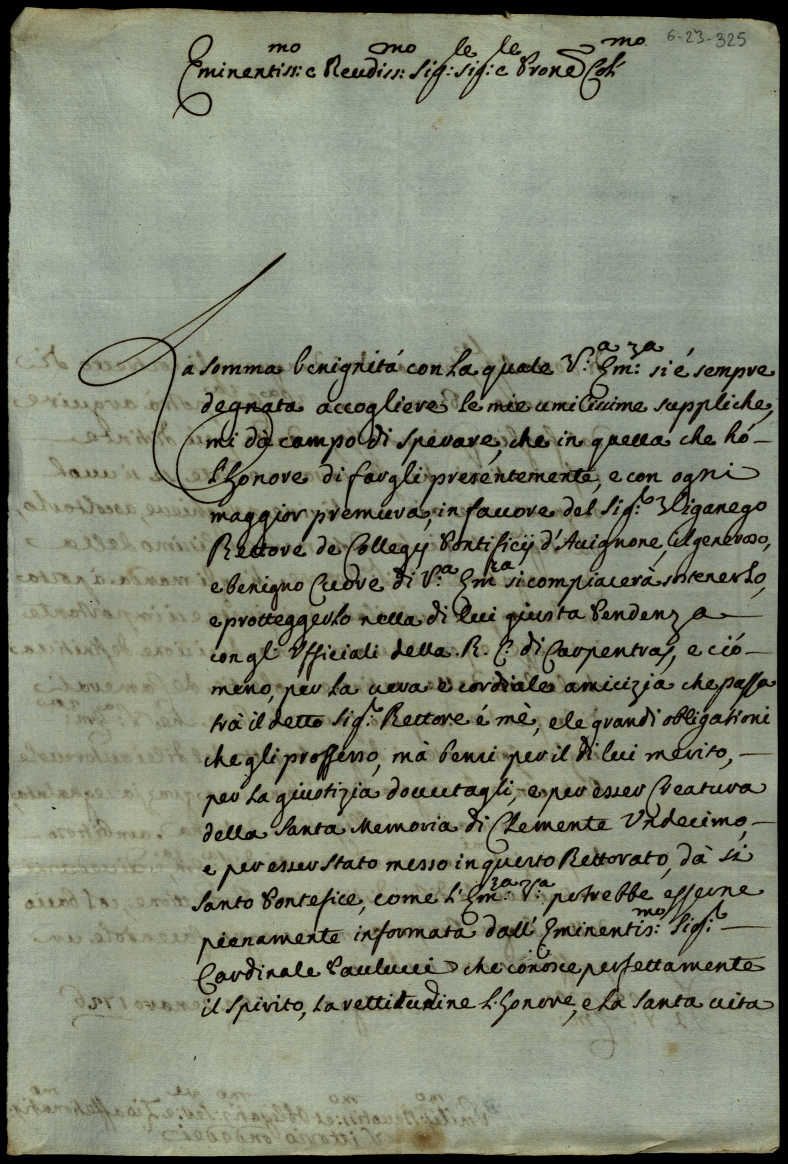 6-23-325
Eminentiss:mo e Reudiss:mo Sig:le Sig:le e Prone Col:mo
La somma benignitá con la quale V:a Em:za si é sempre
degnata accogliere le mie umilissime suppliche,
mi dà campo di sperare, che in quella che hó
l'honore di fargli presentemente, e con ogni
maggior premura, in fauore del Sig:r Viganego
Rettore de Collegij Pontificij d'Auignone, il generoso,
e benigno Cuore di V:a Em:za si compiacerà sostenerlo,
e protteggerlo nella di lui giusta Pendenza
con gl' Vfficiali della R. C. di Carpentras, e ció
meno, per la uera e cordiale amicizia che passa
trà il detto Sig:r Rettore é mè, e le grandi obligationi
che gli proffesso, mà bensi per il di lui merito,
per la giustizia douutagli, e per esser Creatura
della Santa Memoria di Clemente Vndecimo,
e per esser stato messo in questo Rettorato, dà si
Santo Pontefice, come l'Em:za V:a potrebbe esserne
pienamente informata dall' Eminentis:mo Sig:r
Cardinale Paulucci che conosce perfettamente
il Spirito, la rettitudine l'honore, e la Santa uita